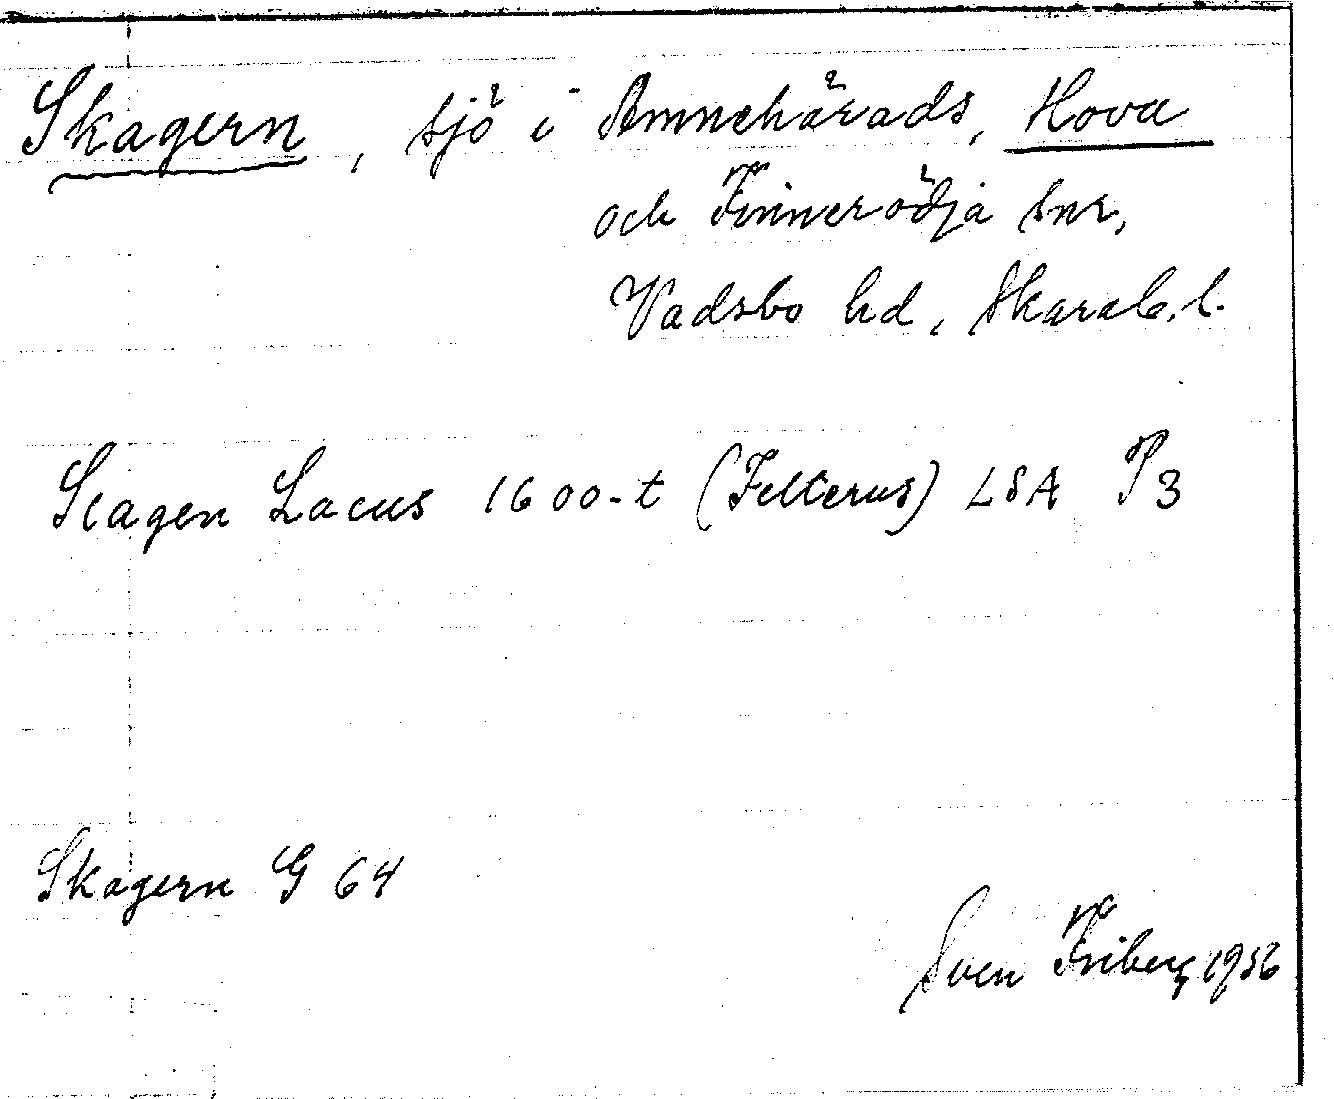 Skagern, sjö i Amnehärads, Hova
och Finnerödja snr,
Vadsbo hd, Skarab. l.
Scagen Lacus 1600-t (Felterus) LSA P3
Skagern G 64
Sven Friberg 1956